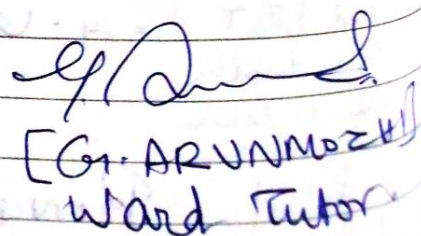 [G. ARUNMOZHI]
Ward Tutor